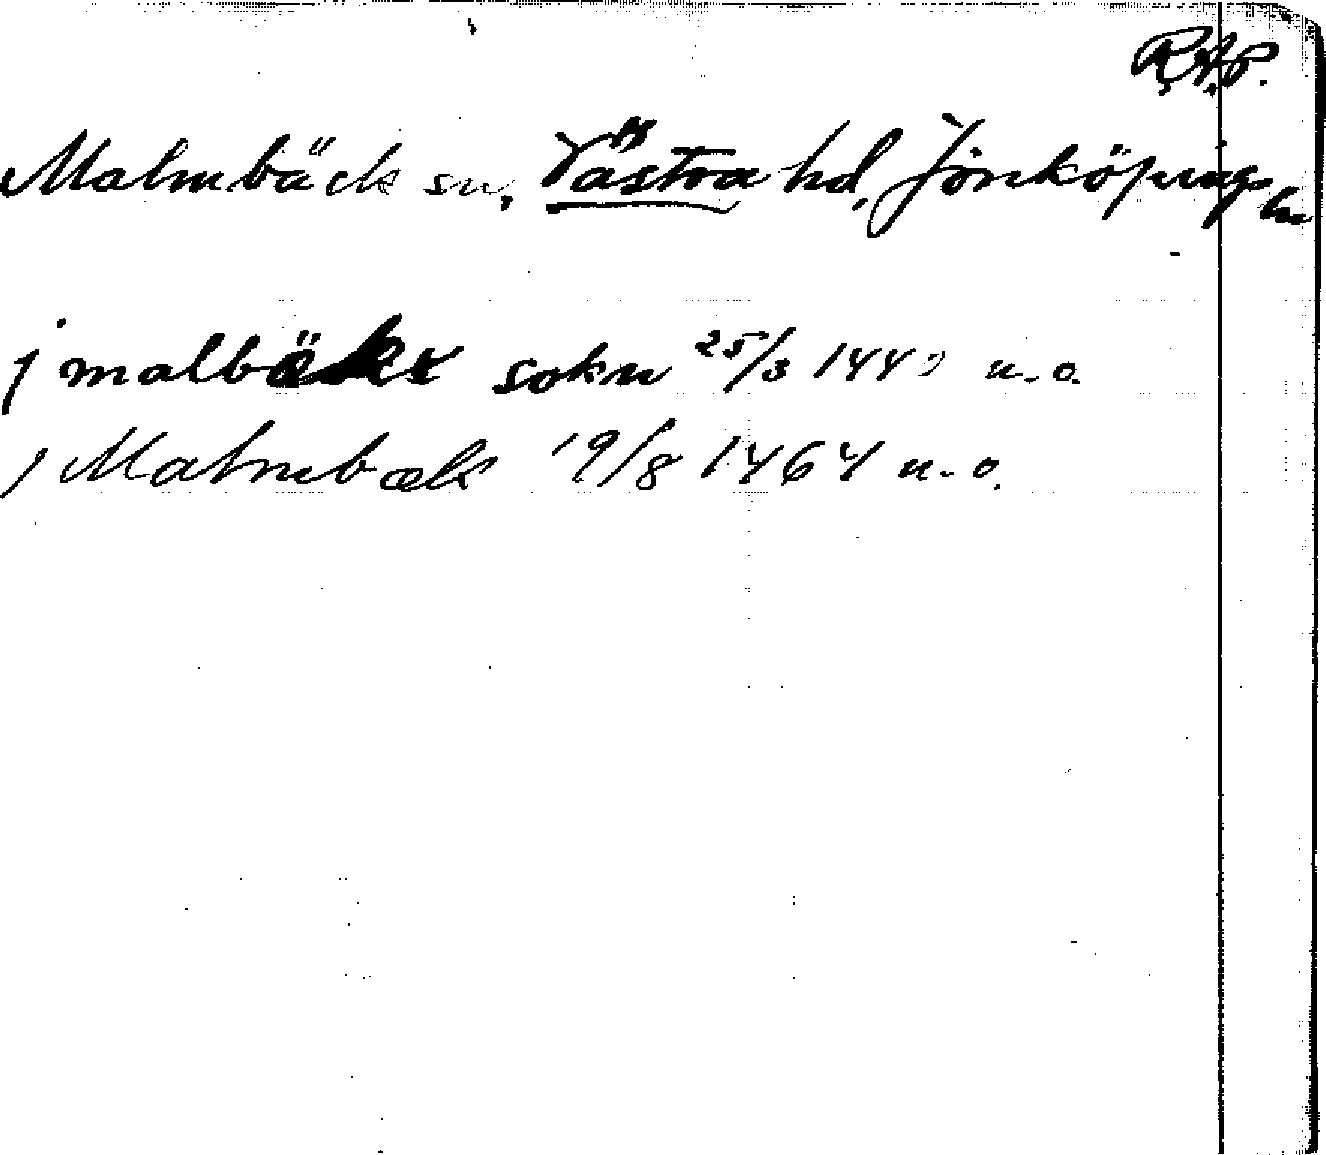 R.A.P.
Malmbäck sn, Västra hd, Jönköpings ln
j malbäks sokn 25/3 144 u. o.
j Malmbæk 19/8 1464 u. o.